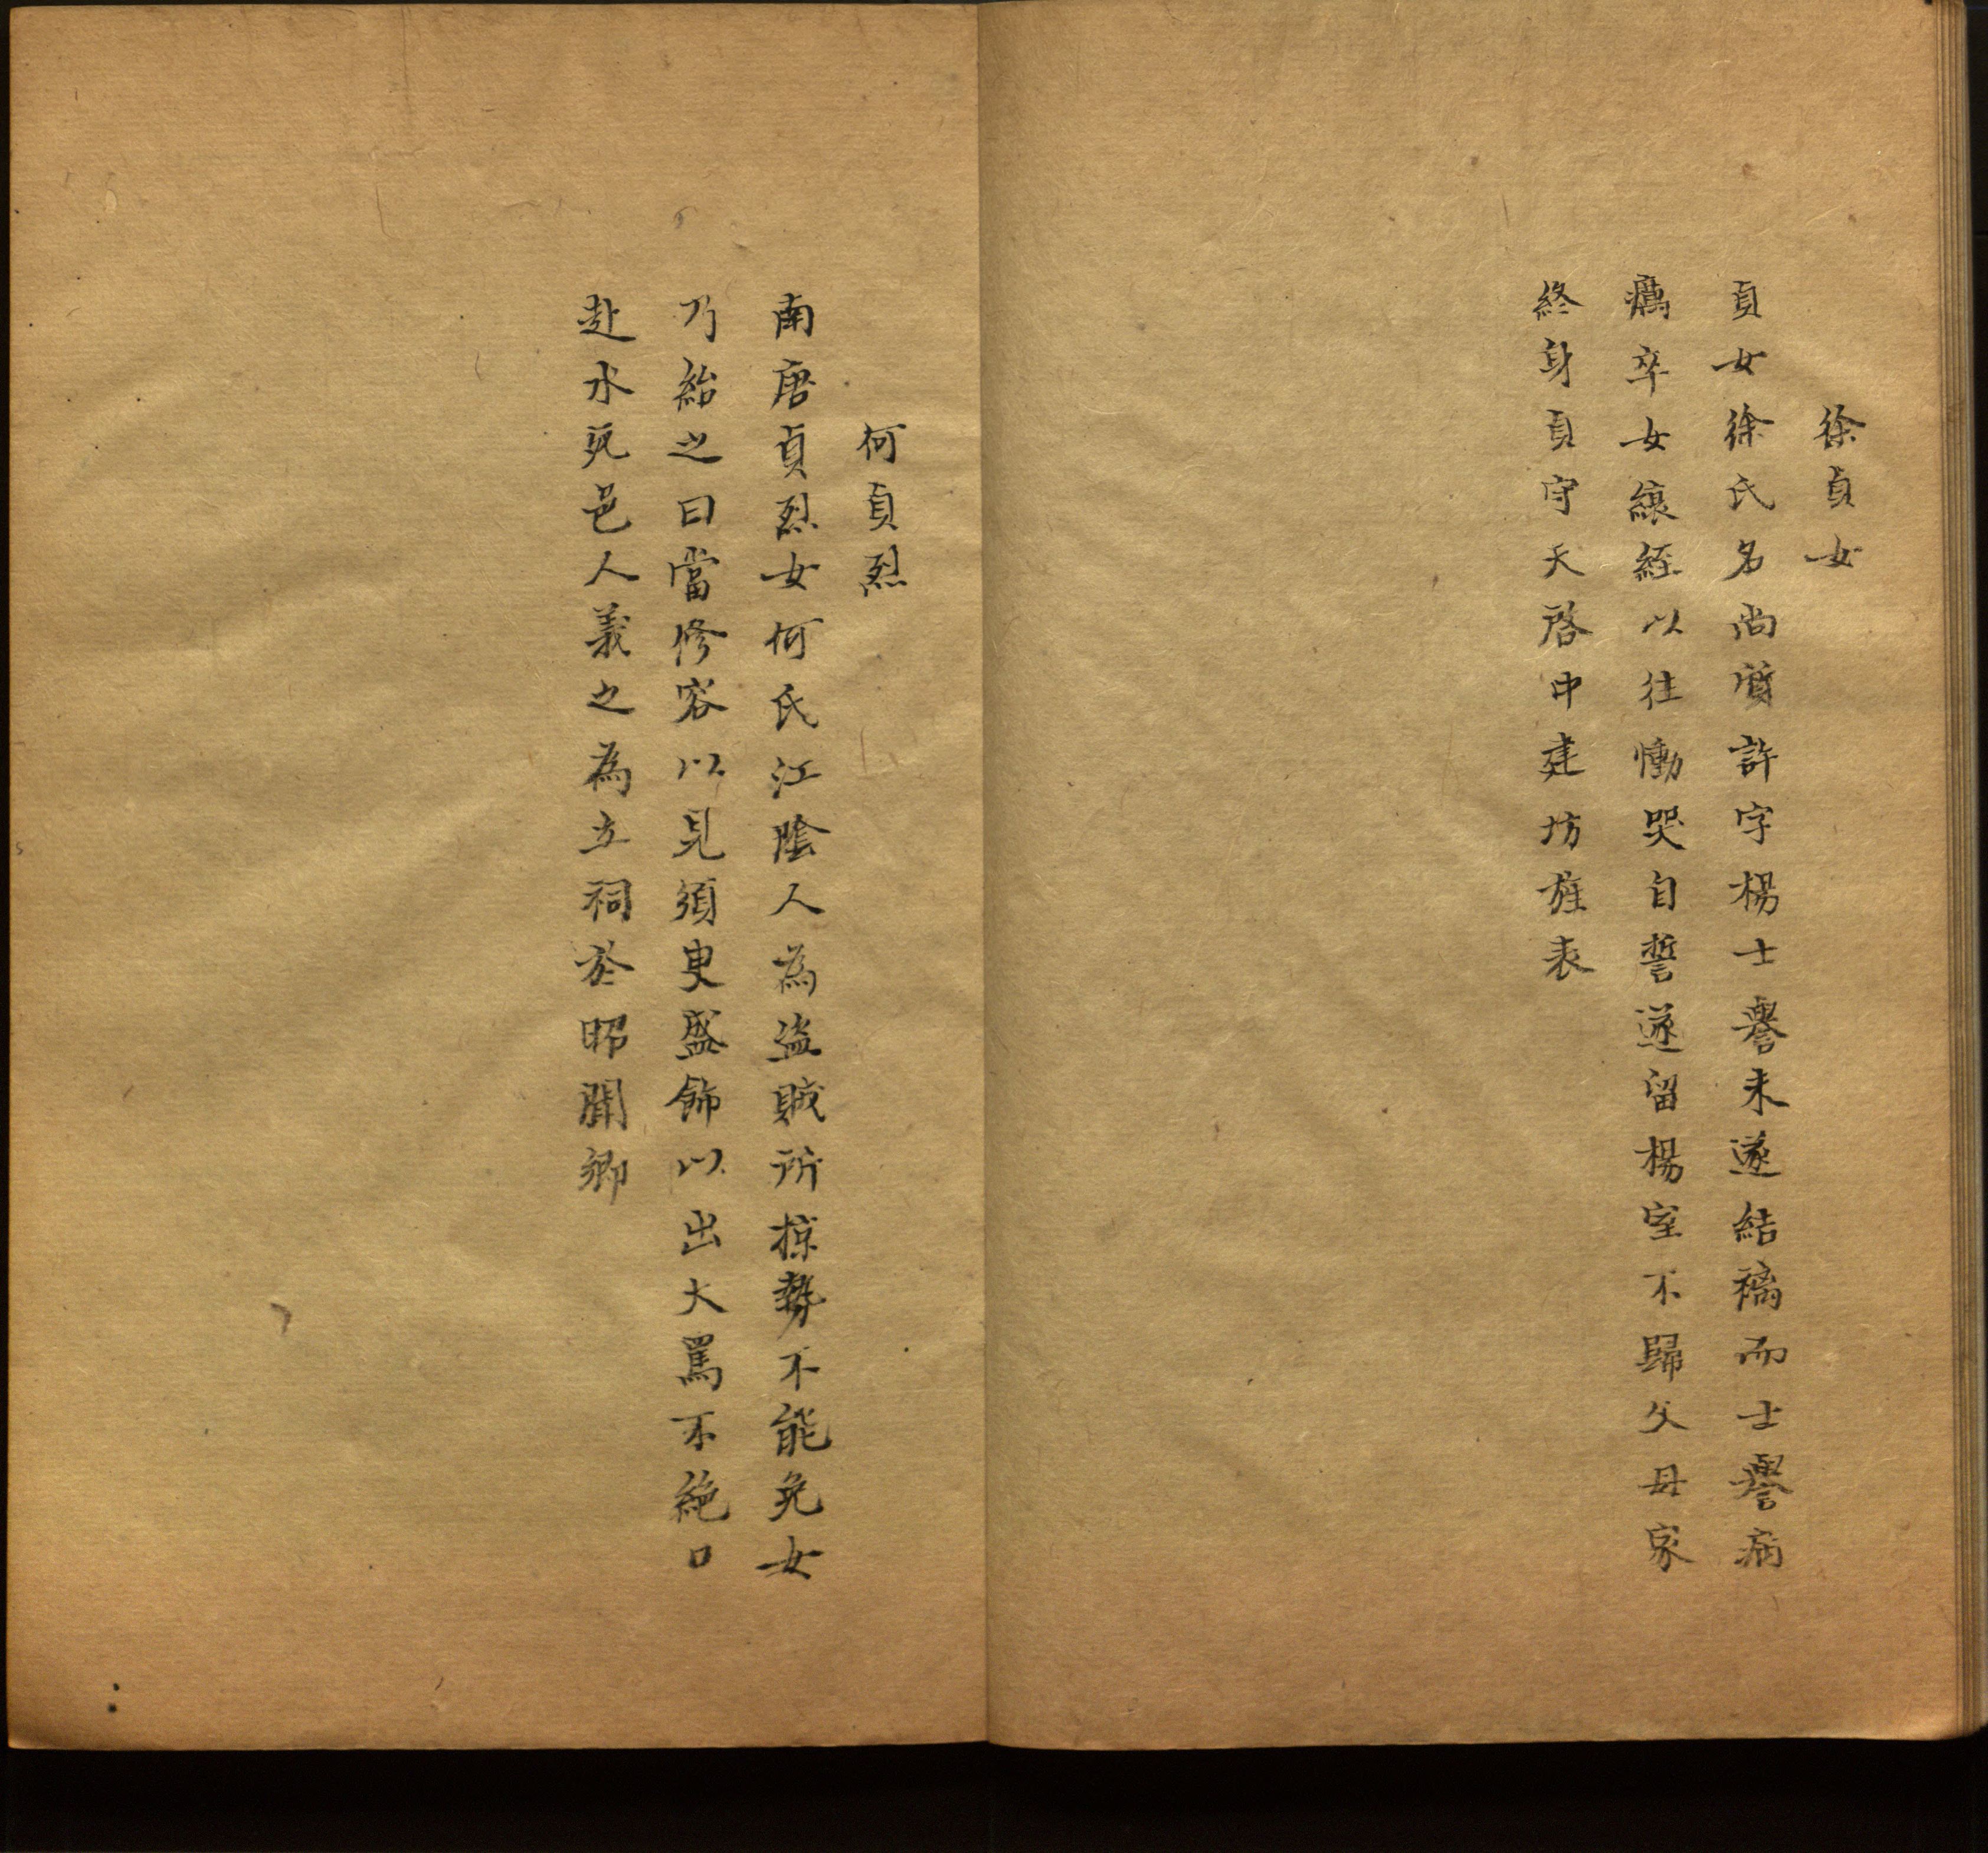 徐貞女
貞女徐氏名尚質許字楊士譽未遂結褵而士譽病
癘卒女縗絰以往慟哭自誓遂留楊室不歸父母家
終身貞守天啓中建坊旌表
何貞烈
南唐貞烈女何氏江陰人為盜賊所掠勢不能免女
乃紿之曰當修容以見須臾盛飾以出大罵不絕口
赴水死邑人義之為立祠於昭聞鄉